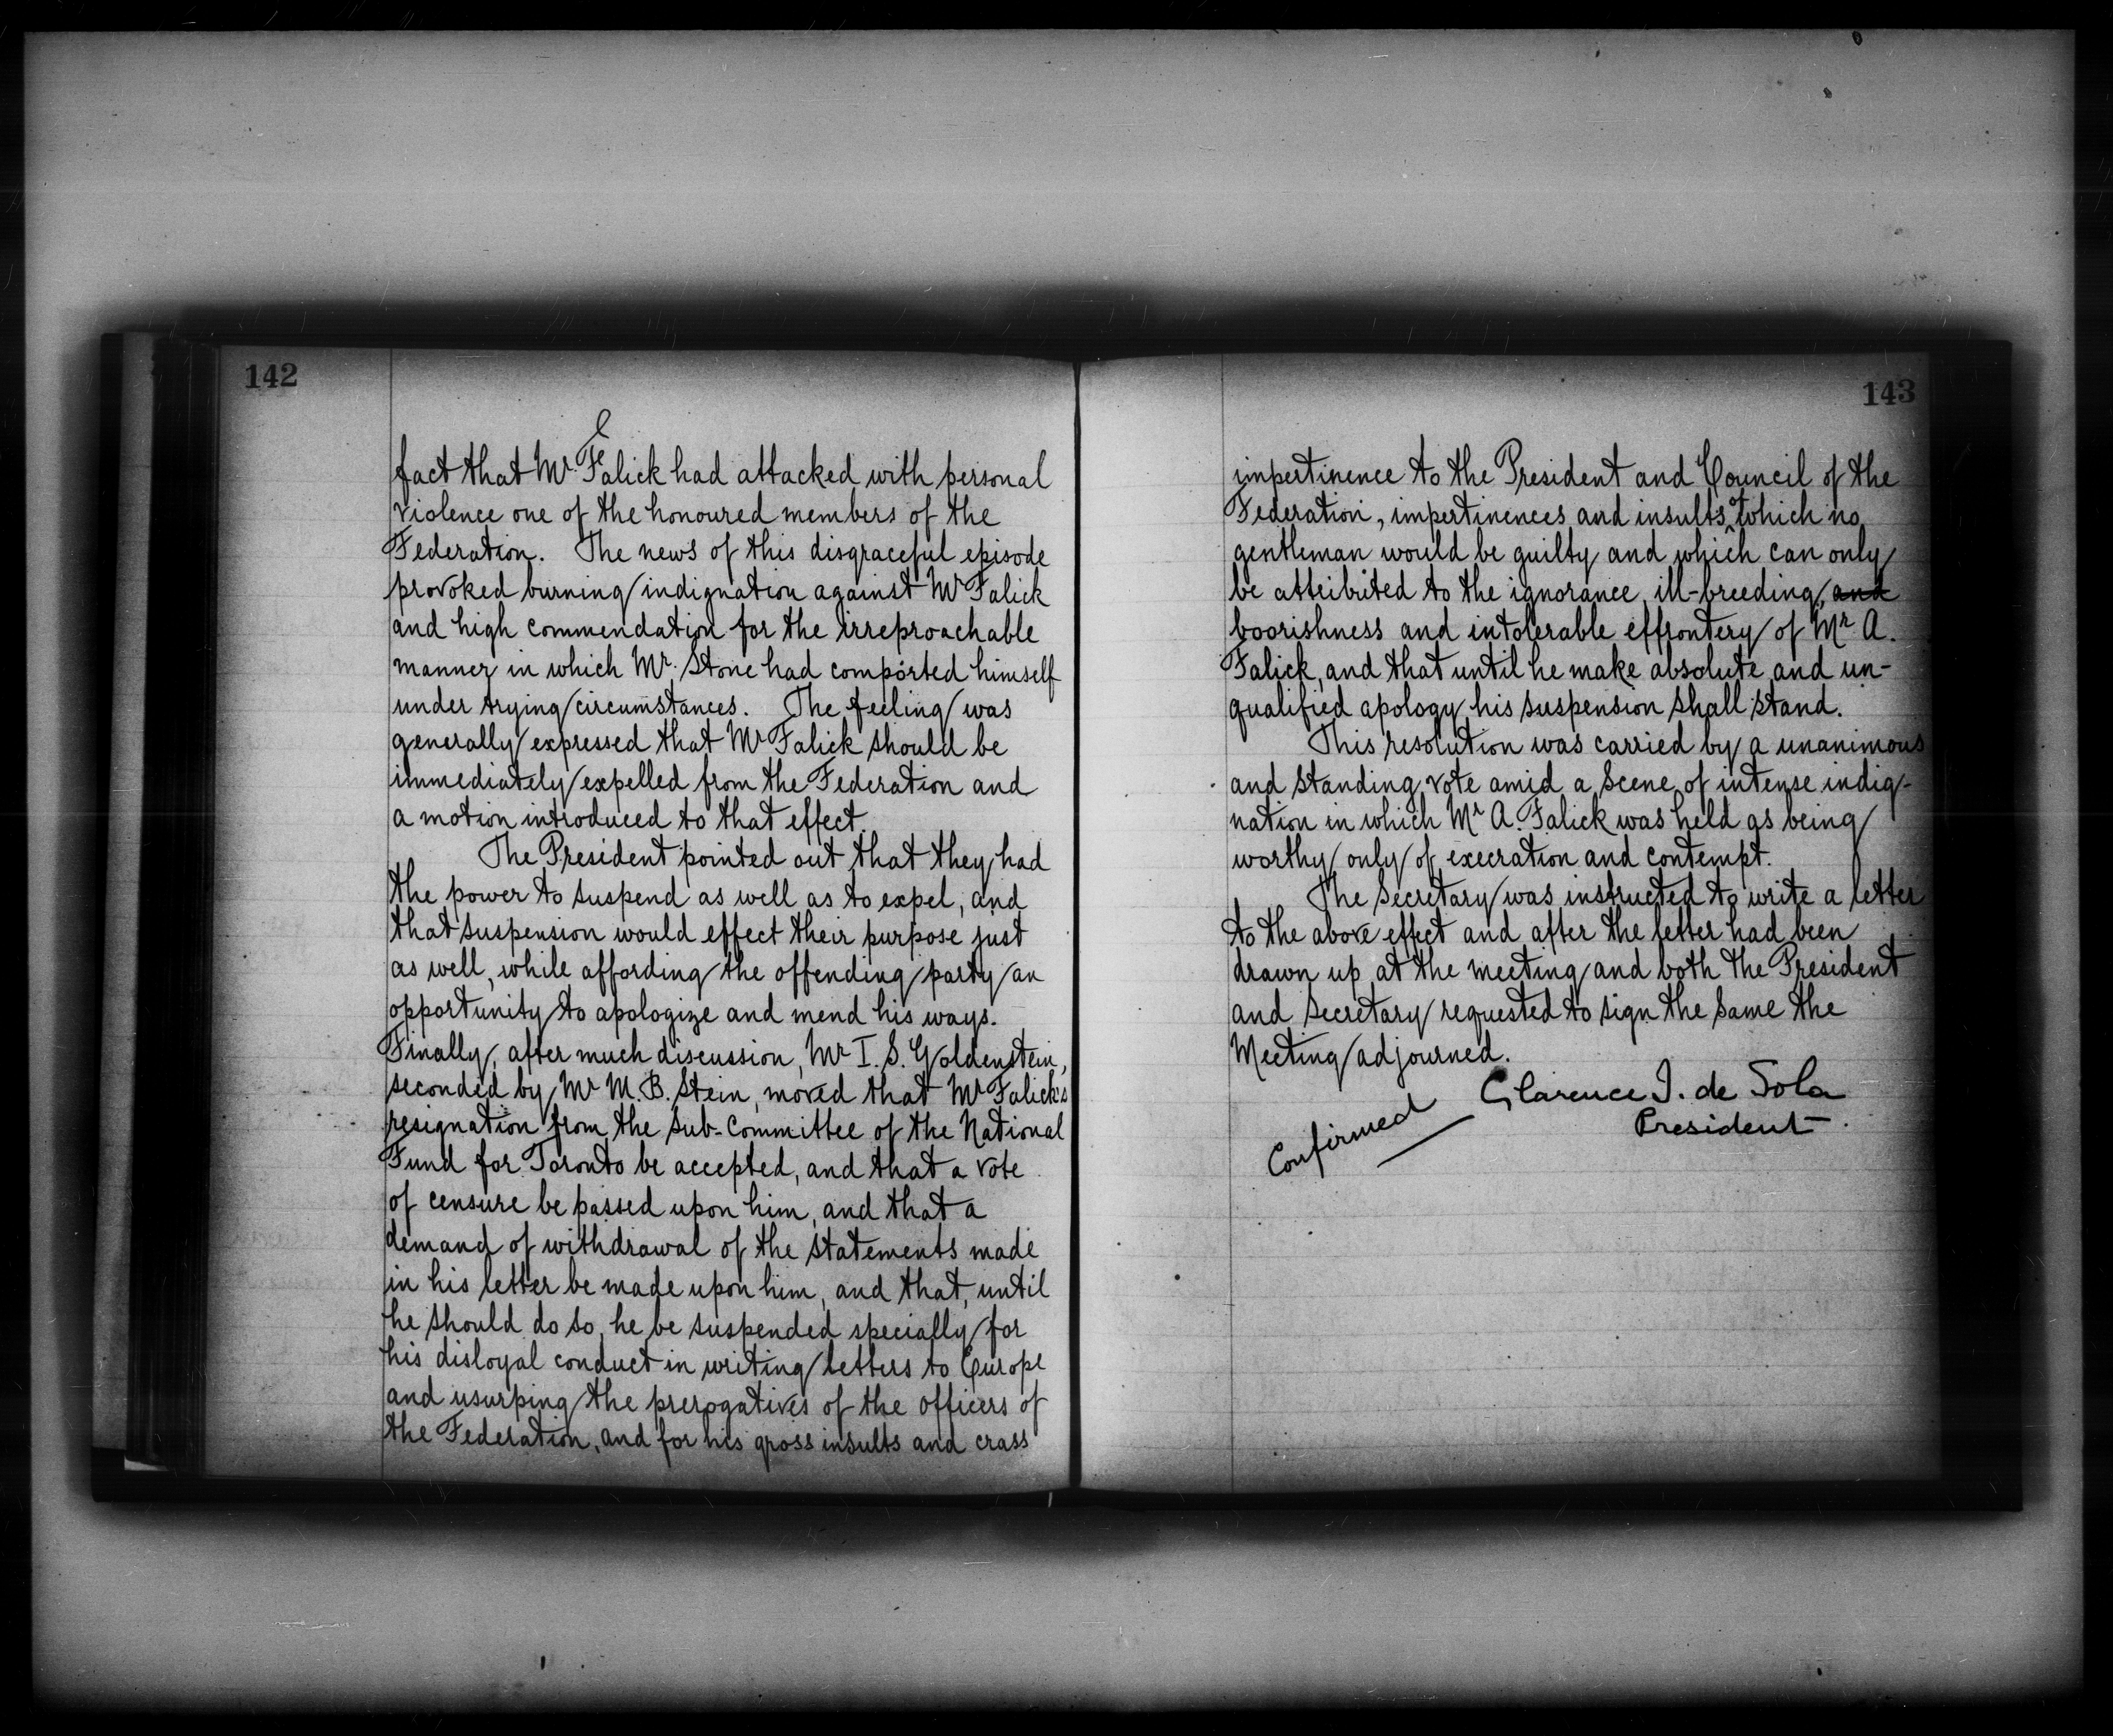 142
fact that Mr. Falick had attacked with personal
violence one of the honoured members of the
Federation. The news of this disgraceful episode
provoked burning indignation against Mr Falick
and high commendation for the irreproachable
manner in which Mr. Stone had comported himself
under trying circumstances. The feeling was
generally expressed that Mr Falick should be
immediately expelled from the Federation and
a motion introduced to that effect.
The President pointed out that they had
the power to suspend as well as to expel, and
that suspension would effect their purpose just
as well, while affording the offending party an
opportunity to apologize and mend his ways.
Finally, after much discussion, Mr I. S. Goldenstein,
seconded by Mr M. B. Stein, moved that Mr Falick's
resignation from the Sub-Committee of the National
Fund for Toronto be accepted, and that a vote
of censure be passed upon him, and that a
demand of withdrawal of the statements made
in his letter be made upon him, and that, until
he should do so, he be suspended specially for
his disloyal conduct in writing letters to Europe
and usurping the prerogatives of the officers of
the Federation, and for his gross insults and crass
143
impertinence to the President and Council of the
Federation, impertinences and insults of which no
gentleman would be guilty and which can only
be attributed to the ignorance, ill-breeding, and
boorishness and intolerable effrontery of Mr A.
Falick, and that until he make absolute and un-
qualified apology his suspension shall stand.
This resolution was carried by a unanimous
and standing vote amid a scene of intense indig-
nation in which Mr A. Falick was held as being
worthy only of execration and contempt.
The Secretary was instructed to write a letter
to the above effect and after the letter had been
drawn up at the meeting and both the President
and Secretary requested to sign the same the
Meeting adjourned.
Clarence I. de Sola
President.
Confirmed